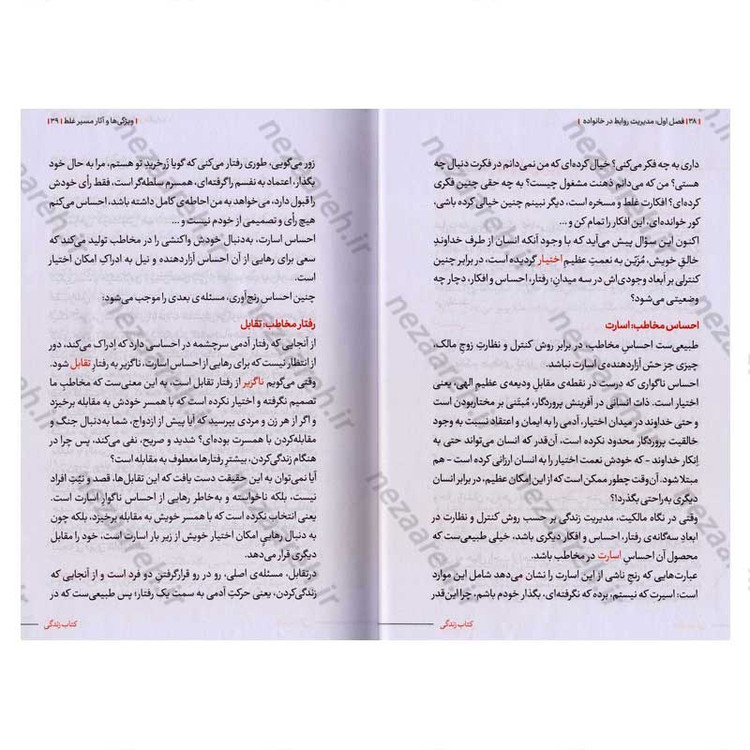 |۳۸| فصل اول: مدیریت روابط در خانواده |
داری به چه فکر می‌کنی؟ خیال کرده‌ای که من نمی‌دانم در فکرت دنبال چه
هستی؟ من که می‌دانم ذهنت مشغول چیست؟ به چه حقی چنین فکری
کرده‌ای؟ افکارت غلط و مسخره است، دیگر نبینم چنین خیالی کرده باشی،
کور خوانده‌ای، این افکار را تمام کن و...
اکنون این سؤال پیش می‌آید که با وجود آنکه انسان از طرف خداوندِ
خالقِ خویش، مُزیّن به نعمتِ عظیم اختیار گردیده است، در برابر چنین
کنترلی بر اَبعاد وجودی‌اش در سه میدانِ: رفتار، احساس و افکار، دچار چه
وضعیتی می‌شود؟
احساس مخاطب: اسارت
طبیعی‌ست احساسِ مخاطب، در برابر روش کنترل و نظارتِ زوجِ مالک،
چیزی جز حس آزاردهنده‌ی اسارت نباشد.
احساس ناگواری که درست در نقطه‌ی مقابلِ ودیعه‌ی عظیم الهی، یعنی
اختیار است. ذات انسانی در آفرینش پروردگار، مُبتَنی بر مختاربودن است
و حتی خداوند در میدان اختیار، آدمی را به ایمان و اعتقادِ نسبت به وجود
خالقیت پروردگار محدود نکرده است، آن‌قدر که انسان می‌تواند حتی به
اِنکار خداوند - که خودش نعمت اختیار را به انسان ارزانی کرده است - هم
مبتلا شود. آن‌وقت چطور ممکن است که از این امکان عظیم، در برابر انسان
دیگری به‌راحتی بگذرد!؟
وقتی در نگاه مالکیت، مدیریت زندگی بر حسب روش کنترل و نظارت در
ابعادِ سه‌گانه‌ی رفتار، احساس و افکار دیگری، خیلی طبیعی‌ست که
محصول آن احساسِ اسارت در مخاطب باشد.
عبارت‌هایی که رنج ناشی از این اسارت را نشان می‌دهد شامل این موارد
است: اسیرت که نیستم، برده که نگرفته‌ای، بگذار خودم باشم، چرا این‌قدر
کتاب زندگی
| ویژگی‌ها و آثار مسیر غلط |۳۹|
زور می‌گویی، طوری رفتار می‌کنی که گویا زَرخرید تو هستم، مرا به حال خود
بگذار، اعتماد به نفسم را گرفته‌ای، همسرم سلطه‌گر است، فقط رأی خودش
را قبول دارد، می‌خواهد به من احاطه‌ی کامل داشته باشد، احساس می‌کنم
هیچ رأی و تصمیمی از خودم نیست و...
احساس اسارت، به‌دنبال خودش واکنشی را در مخاطب تولید می‌کند که
سعی برای رهایی از آن احساس آزاردهنده و نیل به ادراکِ امکان اختیار
است.
چنین احساس رنج‌آوری، مسئله‌ی بعدی را موجب می‌شود:
رفتار مخاطب: تقابل
از آنجایی که رفتار آدمی سرچشمه در احساسی دارد که اِدراک می‌کند، دور
از انتظار نیست که برای رهایی از احساس اسارت، ناگزیر به رفتارِ تقابل شود.
وقتی می‌گویم ناگزیر از رفتار تقابل است، به این معنی‌ست که مخاطبِ ما
تصمیم نگرفته و اختیار نکرده است که با همسر خودش به مقابله برخیزد
و اگر از هر زن و مردی بپرسید که آیا پیش از ازدواج، شما به‌دنبال جنگ و
مقابله‌کردن با همسرت بوده‌ای؟ شدید و صریح، نفی می‌کند، پس چرا در
هنگام زندگی‌کردن، بیشترِ رفتارها معطوف به مقابله است؟
آیا نمی‌توان به این حقیقت دست یافت که این تقابل‌ها، قصد و نیّتِ افراد
نیست، بلکه ناخواسته و به‌خاطر رهایی از احساس ناگوارِ اسارت است.
یعنی انتخاب نکرده است که با همسر خویش به مقابله برخیزد، بلکه چون
به دنبال رهاییِ امکان اختیار خویش از زیر بار اسارت است، خود را مقابل
دیگری قرار می‌دهد.
در تقابل، مسئله‌ی اصلی، رو در رو قرارگرفتنِ دو فرد است و از آنجایی که
زندگی‌کردن، یعنی حرکتِ آدمی به سمت یک رفتار؛ پس طبیعی‌ست که در
کتاب زندگی
nezaareh.ir